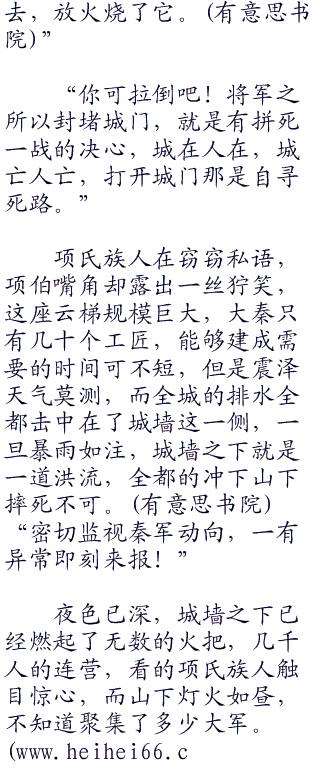 去，放火烧了它。(有意思书
院)”
“你可拉倒吧！将军之
所以封堵城门，就是有拼死
一战的决心，城在人在，城
亡人亡，打开城门那是自寻
死路。”
项氏族人在窃窃私语，
项伯嘴角却露出一丝狞笑，
这座云梯规模巨大，大秦只
有几十个工匠，能够建成需
要的时间可不短，但是震泽
天气莫测，而全城的排水全
都击中在了城墙这一侧，一
旦暴雨如注，城墙之下就是
一道洪流，全都的冲下山下
摔死不可。(有意思书院)
“密切监视秦军动向，一有
异常即刻来报！”
夜色已深，城墙之下已
经燃起了无数的火把，几千
人的连营，看的项氏族人触
目惊心，而山下灯火如昼，
不知道聚集了多少大军。
(www.heihei66.c